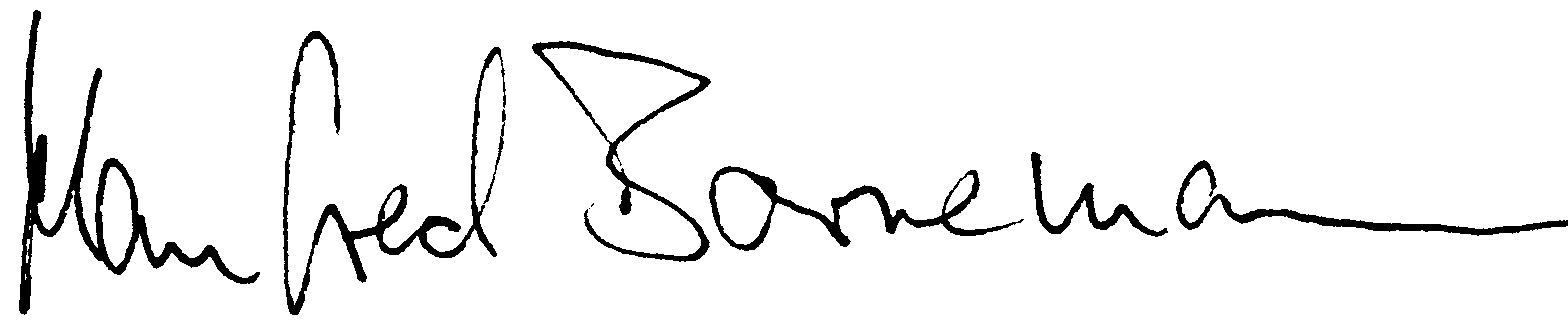 Manfred Bornemann